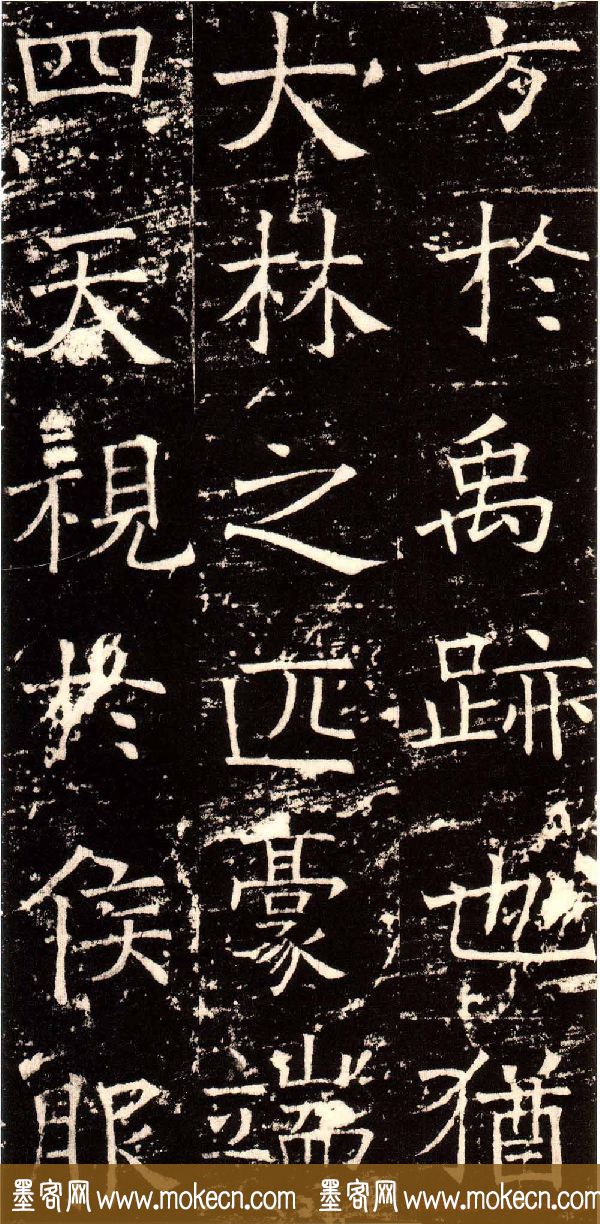 方於禹跡也猶
大林之匹豪端
四天視於侯服
墨客网 www.mokecn.com 墨客网 www.mokecn.com